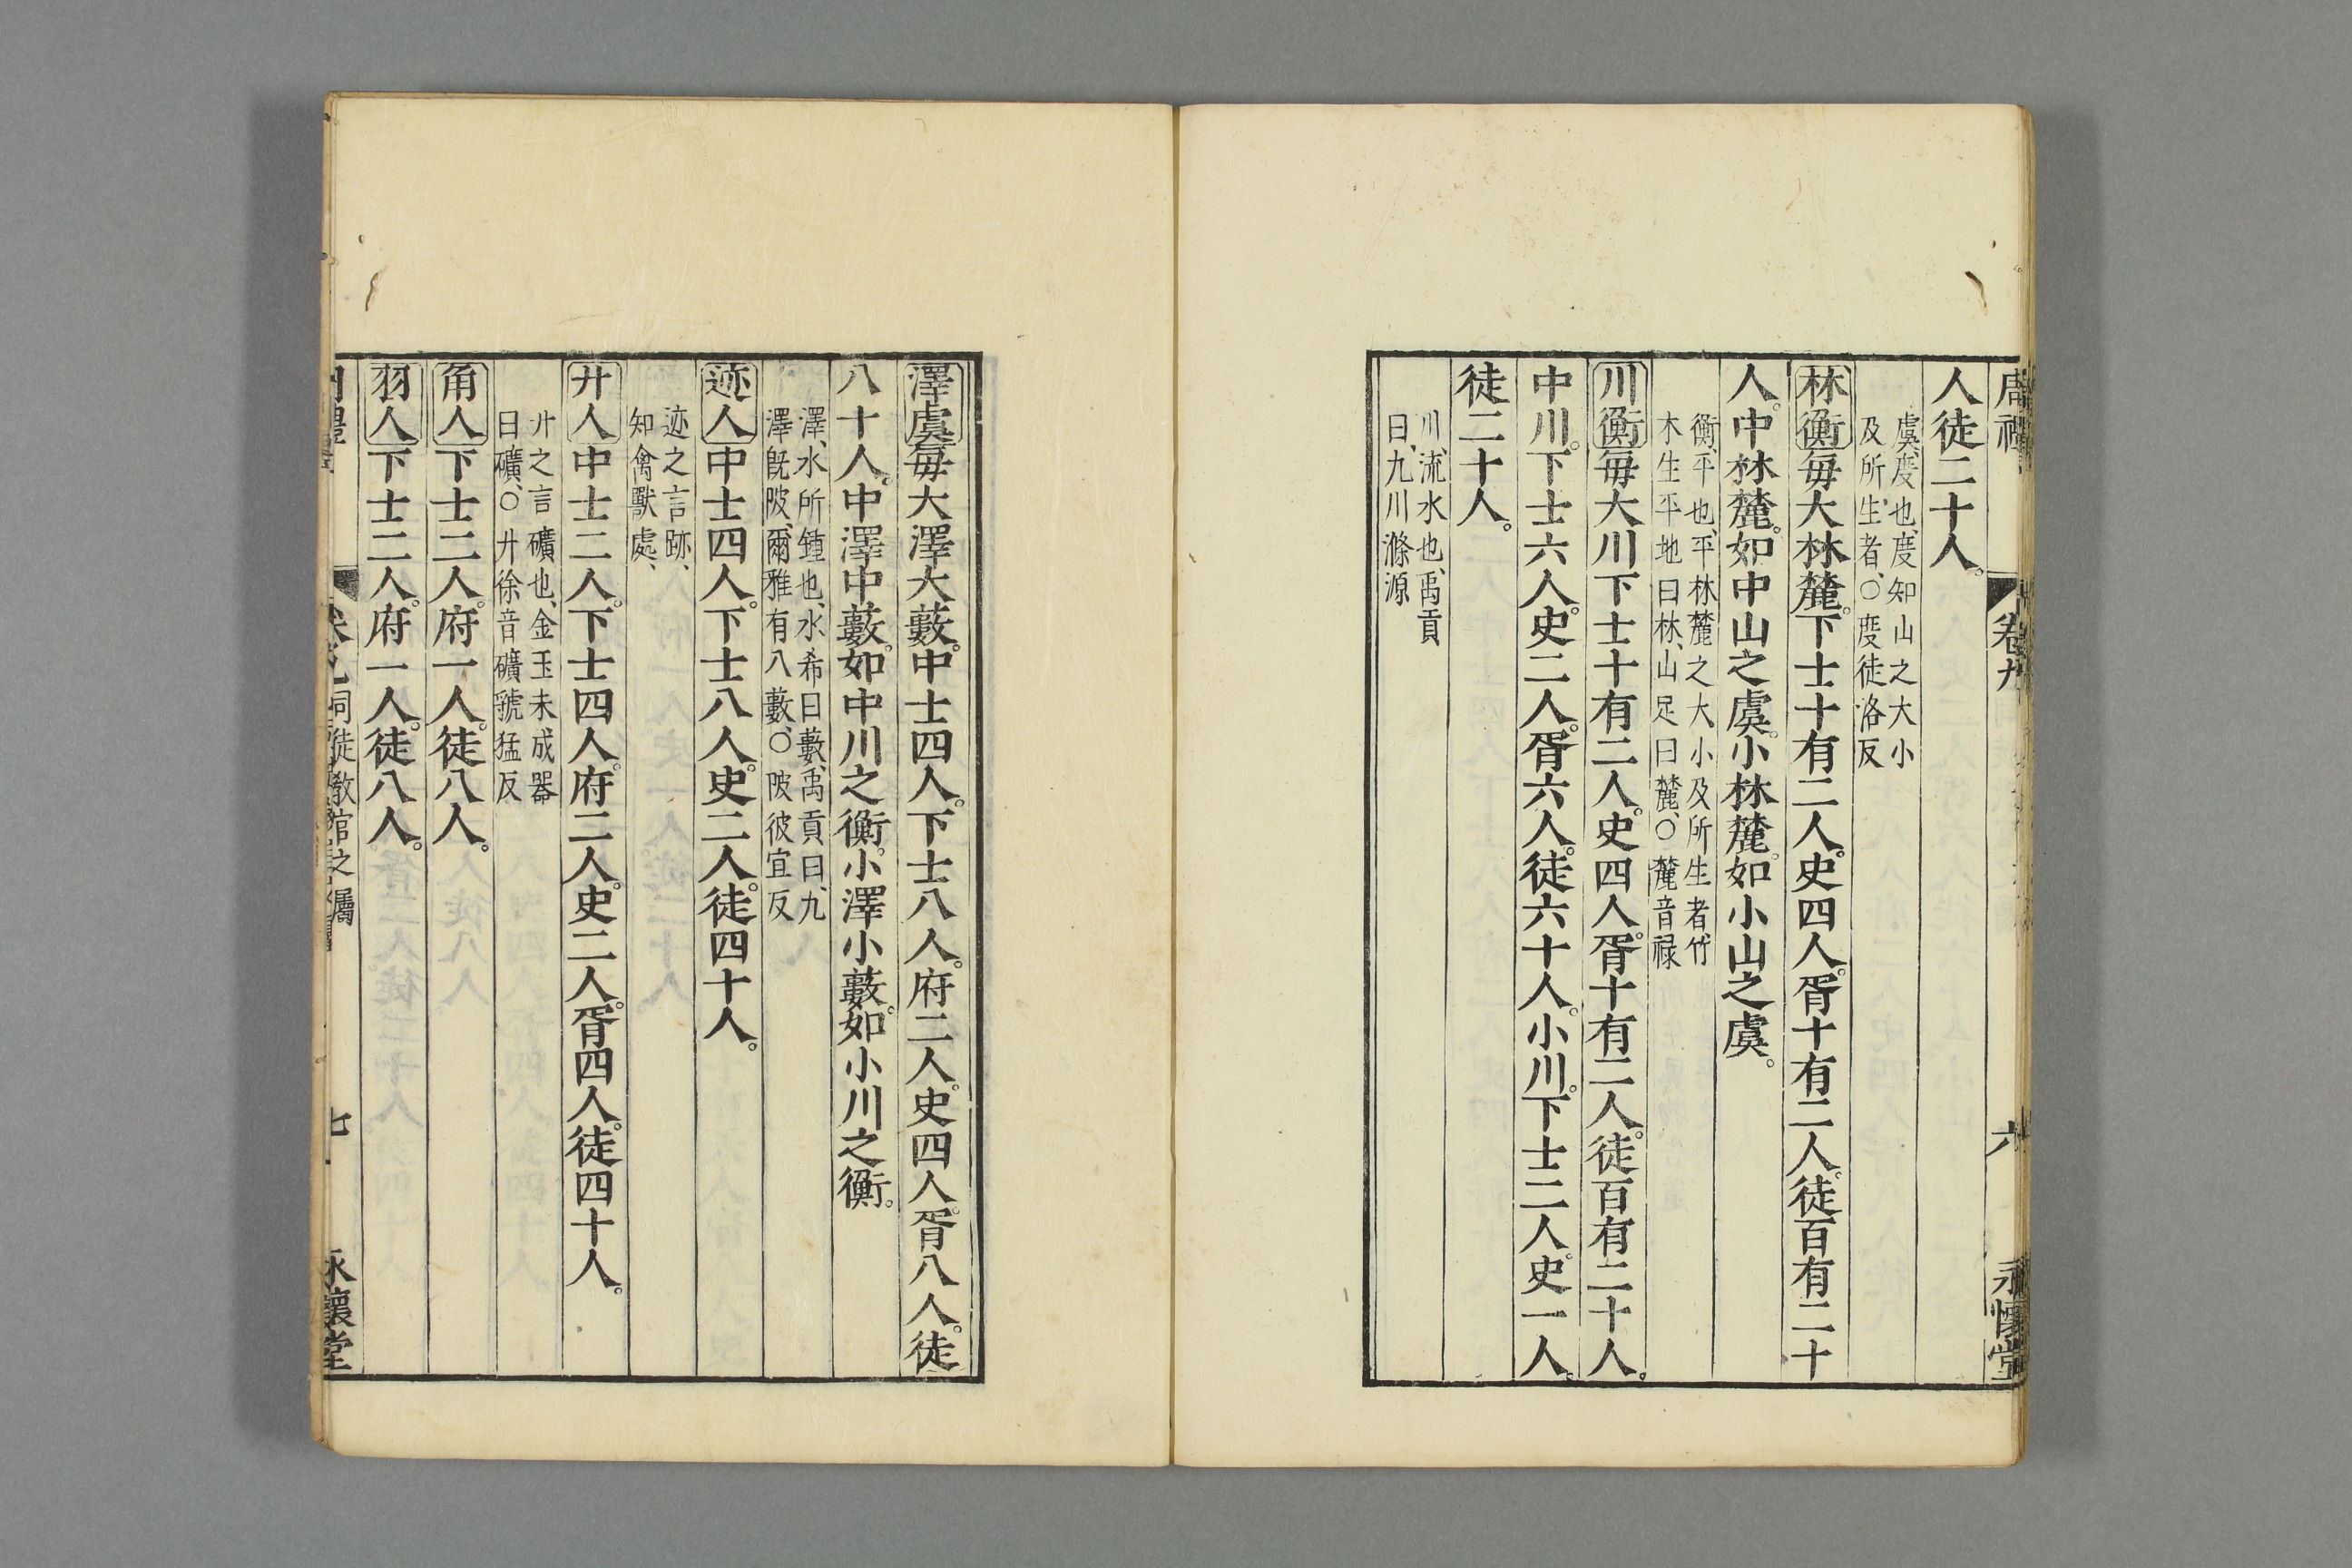 卷九
六
永懷堂
人徒二十人。
虞、度也、度知山之大小
及所生者、○度徒洛反
林衡每大林麓。下士十有二人。史四人。胥十有二人。徒百有二十
人。中林麓。如中山之虞。小林麓。如小山之虞。
衡、平也、平林麓之大小及所生者、竹
木生平地曰林、山足曰麓、○麓音祿
川衡每大川下士十有二人。史四人。胥十有二人。徒百有二十人。
中川。下士六人。史二人。胥六人。徒六十人。小川。下士二人。史一人。
徒二十人。
川、流水也、禹貢
曰、九川滌源
澤虞每大澤大藪。中士四人。下士八人。府二人。史四人。胥八人。徒
八十人。中澤中藪。如中川之衡。小澤小藪。如小川之衡。
澤、水所鍾也、水希曰藪、禹貢曰、九
澤既陂、爾雅有八藪、○陂彼宜反
迹人中士四人。下士八人。史二人。徒四十人。
迹之言跡、
知禽獸處、
丱人中士二人。下士四人。府二人。史二人。胥四人。徒四十人。
丱之言礦也、金玉未成器
曰礦、○丱徐音礦虢猛反
角人下士二人。府一人。徒八人。
羽人下士二人。府一人。徒八人。
司徒敎官之屬
七
永懷堂